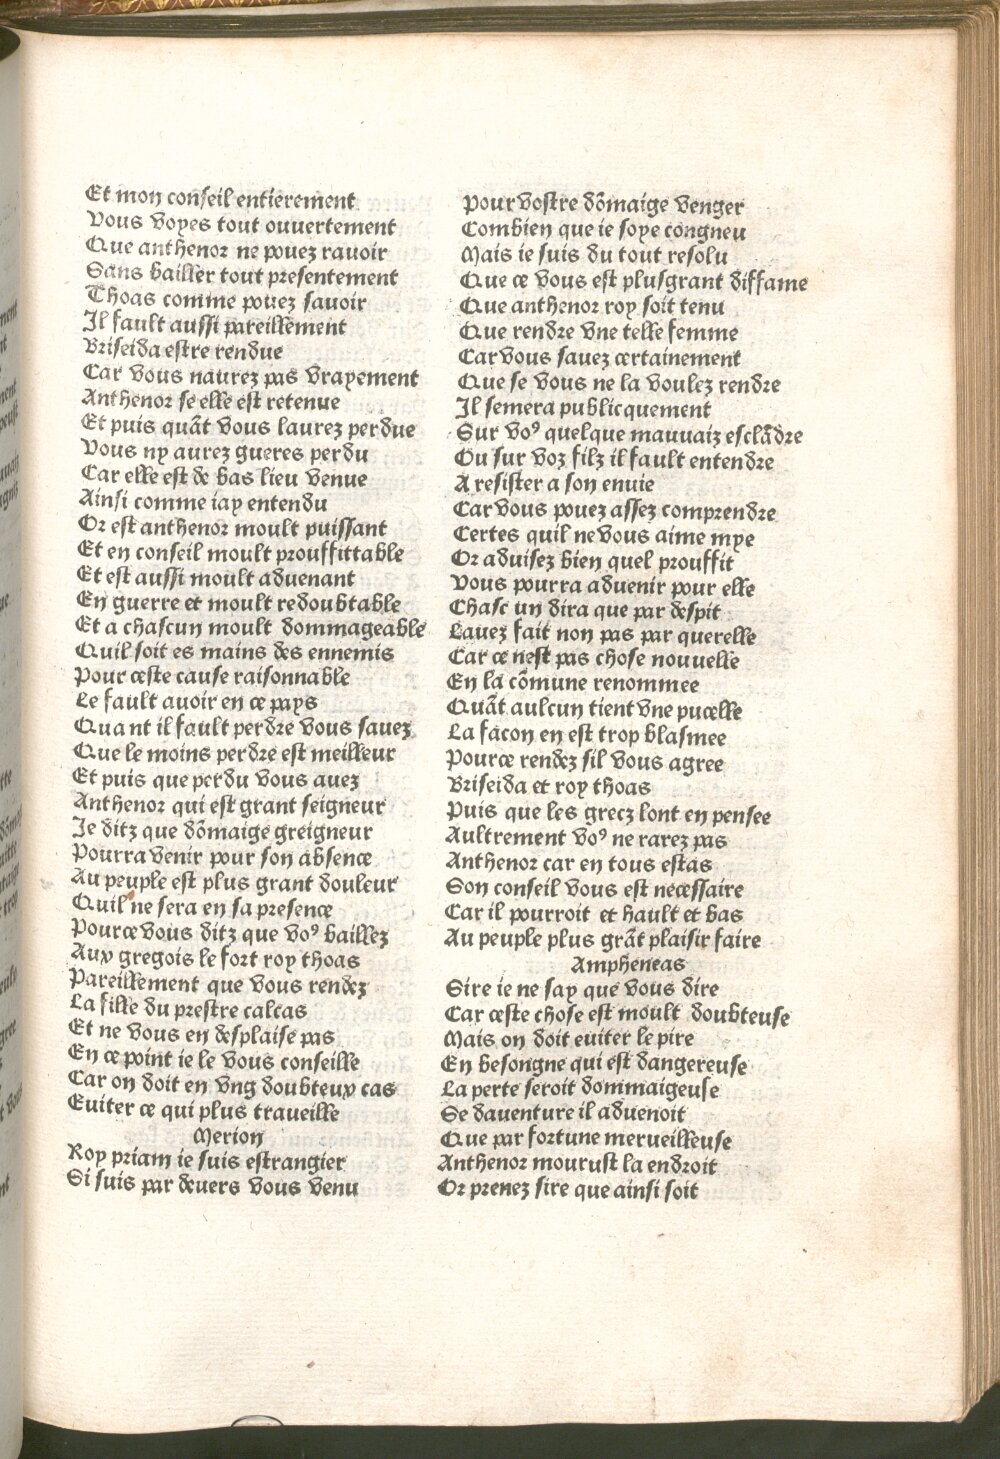 Et mon conseil entierement
Vous voyes tout ouvertement
Que anthenor ne pouez rauoir
Sans bailler tout presentement
Thoas comme pouez sauoir
Il fault aussi pareillement
Briseida estre rendue
Car vous naurez pas vrayement
Anthenor se elle est retenue
Et puis quãt vous laurez perdue
Vous ny aurez gueres perdu
Car elle est de bas lieu venue
Ainsi comme iay entendu
Or est anthenor moult puissant
Et en conseil moult prouffittable
Et est aussi moult aduenant
En guerre et moult redoubtable
Et a chascun moult dommageable
Quil soit es mains des ennemis
Pour ceste cause raisonnable
Le fault auoir en ce pays
Quant il fault perdre vous sauez
Que le moins perdre est meilleur
Et puis que perdu vous auez
Anthenor qui est grant seigneur
Je ditz que dõmaige greigneur
Pourra venir pour son absence
Au peuple est plus grant douleur
Quil ne sera en sa presence
Pource vous ditz que voꝰ baillez
Aux gregois le fort roy thoas
Pareillement que vous rendez
La fille du prestre calcas
Et ne vous en desplaise pas
En ce point ie le vous conseille
Car on doit en vng doubteux cas
Euiter ce qui plus traueille
Merion
Roy priam ie suis estrangier
Si suis par deuers vous venu
Pour vostre dõmaige venger
Combien que ie soye congneu
Mais ie suis du tout resolu
Que ce vous est plusgrant diffame
Que anthenor roy soit tenu
Que rendre vne telle femme
Car vous sauez certainement
Que se vous ne la voulez rendre
Il semera publicquement
Sur voꝰ quelque mauuaiz esclãdre
Ou sur voz filz il fault entendre
A resister a son enuie
Car vous pouez assez comprendre
Certes quil ne vous aime mye
Or aduisez bien quel prouffit
Vous pourra aduenir pour elle
Chasc un dira que par despit
Lauez fait non pas par querelle
Car ce nest pas chose nouuelle
En la cõmune renommee
Quãt aulcun tient vne pucelle
La facon en est trop blasmee
Pource rendez sil vous agree
Briseida et roy thoas
Puis que les grecz lont en pensee
Aultrement voꝰ ne rarez pas
Anthenor car en tous estas
Son conseil vous est necessaire
Car il pourroit et hault et bas
Au peuple plus grãt plaisir faire
Ampheneas
Sire ie ne say que vous dire
Car ceste chose est moult doubteuse
Mais on doit euiter le pire
En besongne qui est dangereuse
La perte seroit dommaigeuse
Se dauenture il aduenoit
Que par fortune merueilleuse
Anthenor mourust la endroit
Or prenez sire que ainsi soit